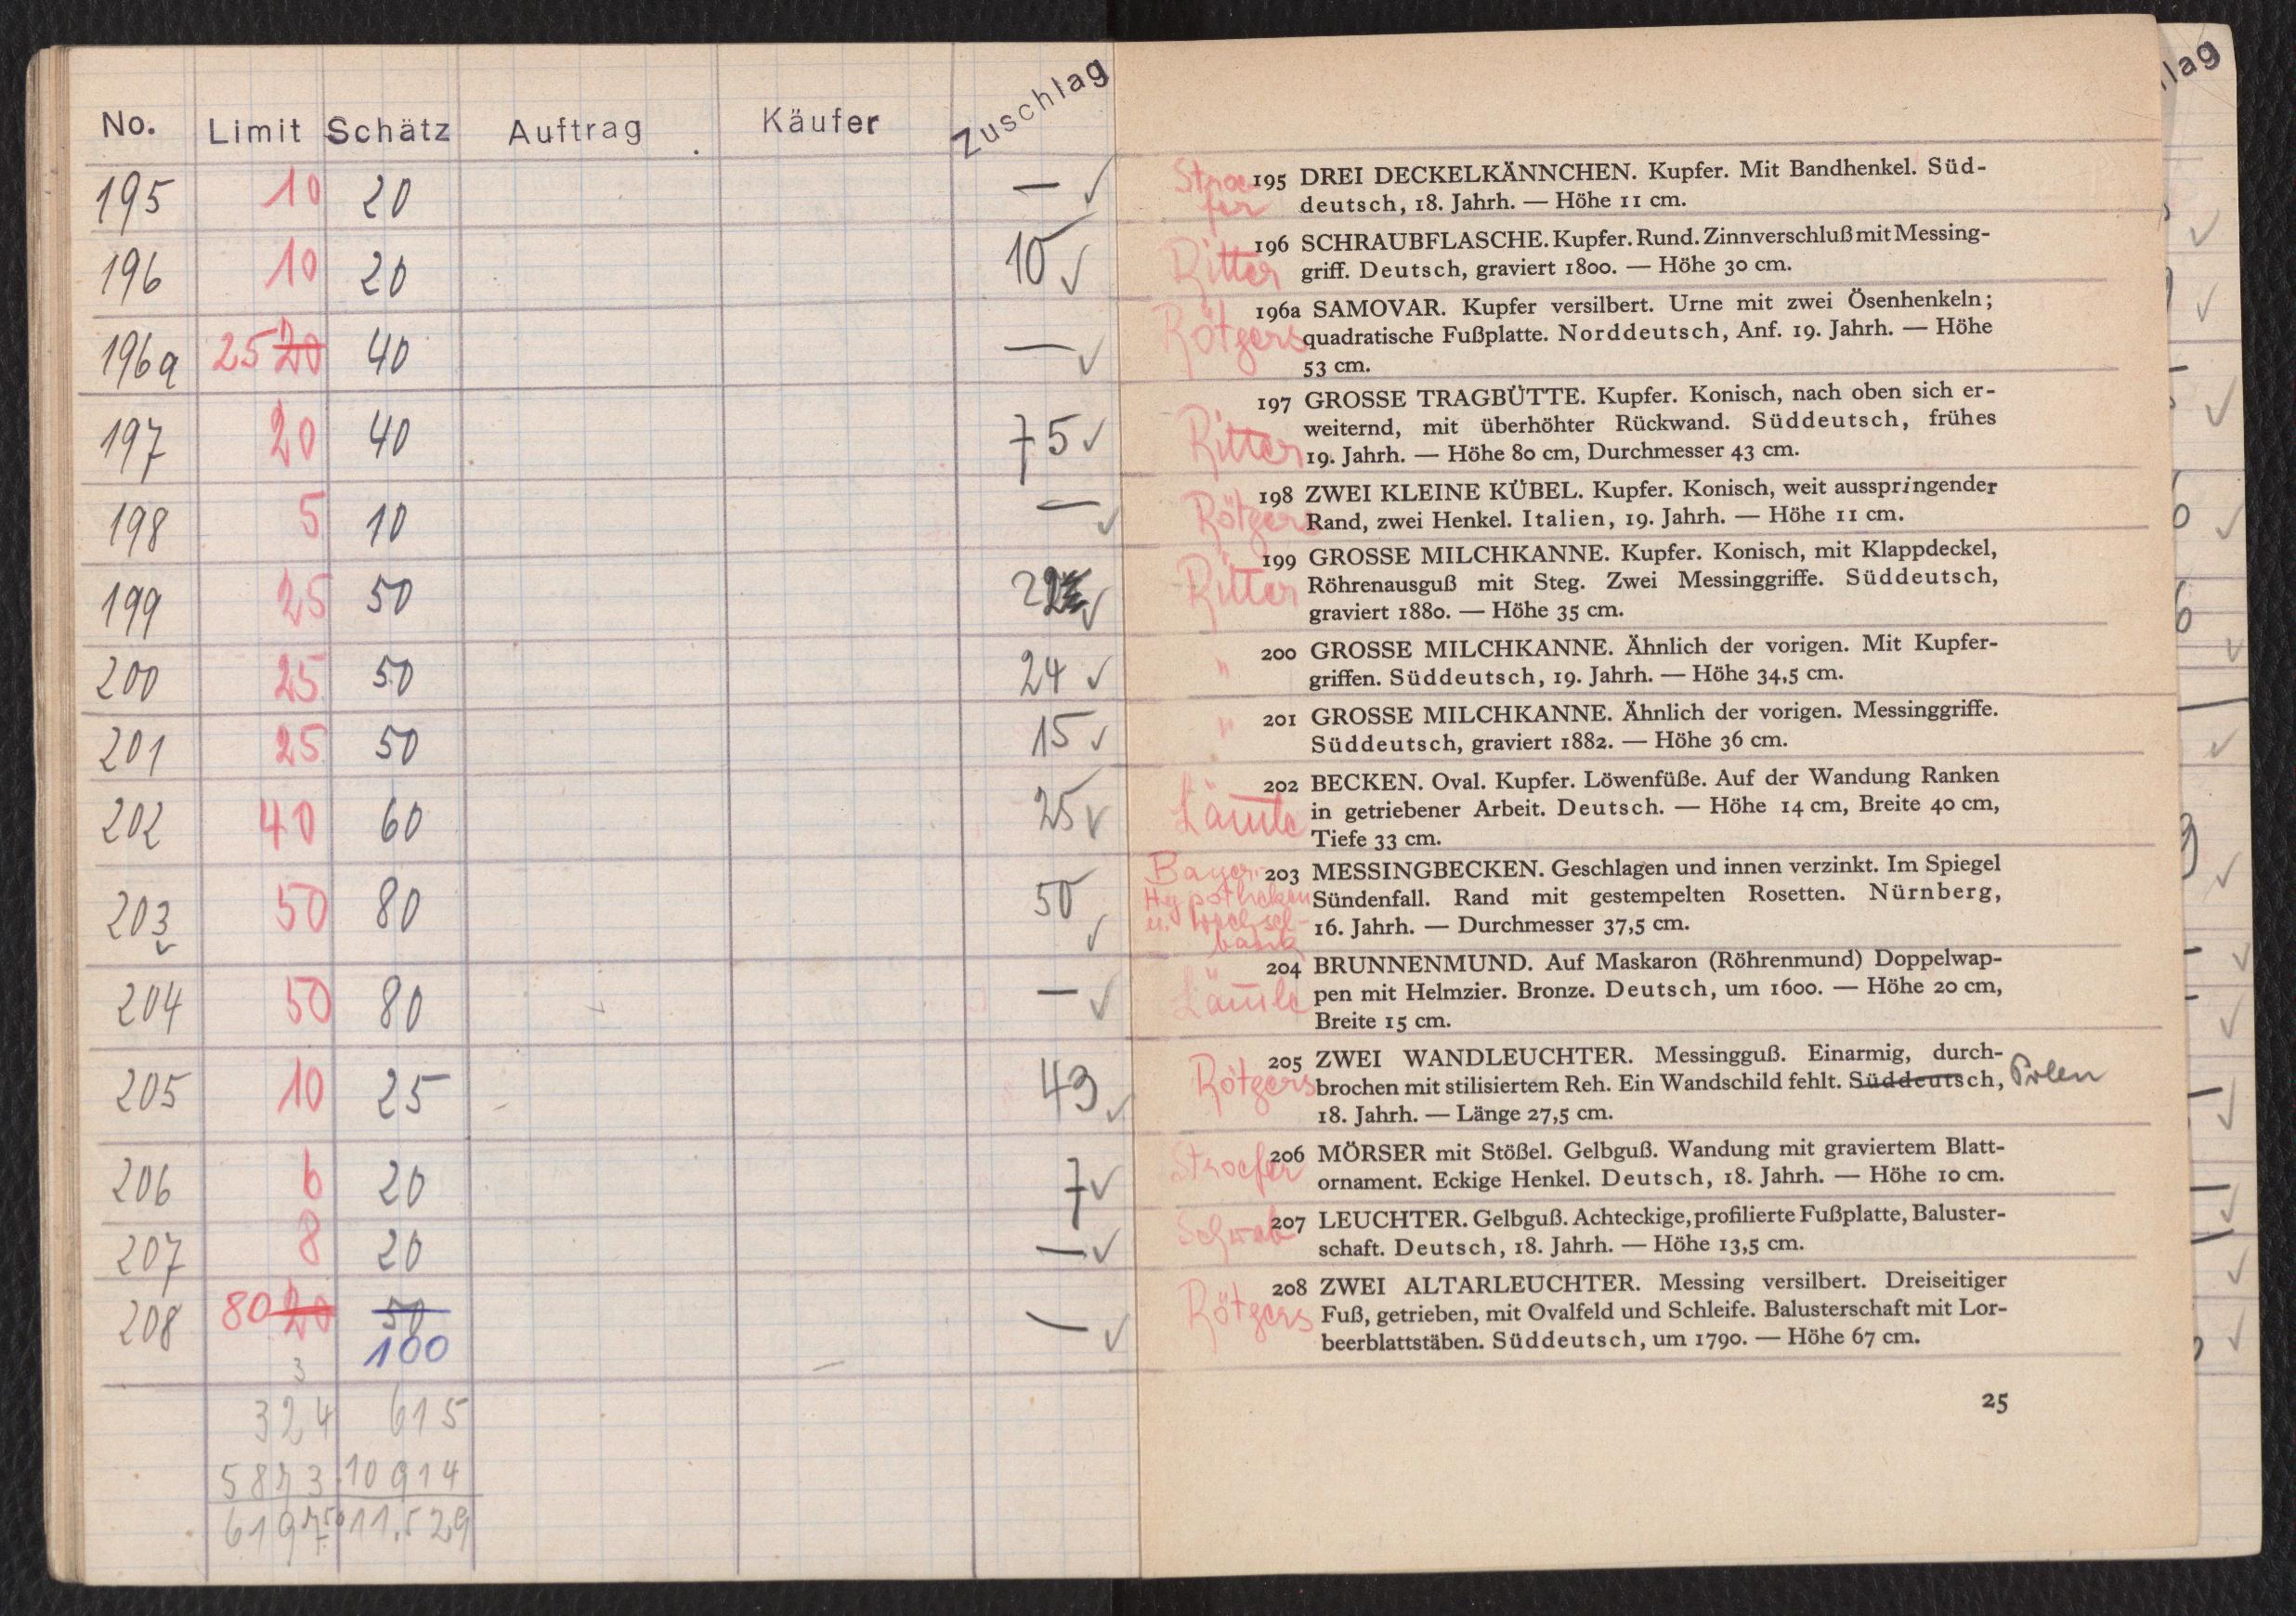 No. Limit Schätz Auftrag Käufer Zuschlag
195 10 20 — ✓
196 10 20 10 ✓
196a 25 20 40 — ✓
197 20 40 75 ✓
198 5 10 — ✓
199 25 50 22 ✓
200 25 50 24 ✓
201 25 50 15 ✓
202 40 60 25 ✓
203 50 80 50 ✓
204 50 80 — ✓
205 10 25 49 ✓
206 6 20 7 ✓
207 8 20 — ✓
208 80 20 50 — ✓
100
3
324 615
5873 10914
6197 50 11.529
Stroe-
fer
195 DREI DECKELKÄNNCHEN. Kupfer. Mit Bandhenkel. Süd-
deutsch, 18. Jahrh. — Höhe 11 cm.
196 SCHRAUBFLASCHE. Kupfer. Rund. Zinnverschluß mit Messing-
Ritter griff. Deutsch, graviert 1800. — Höhe 30 cm.
196a SAMOVAR. Kupfer versilbert. Urne mit zwei Ösenhenkeln;
Rötgers quadratische Fußplatte. Norddeutsch, Anf. 19. Jahrh. — Höhe
53 cm.
197 GROSSE TRAGBÜTTE. Kupfer. Konisch, nach oben sich er-
Ritter weiternd, mit überhöhter Rückwand. Süddeutsch, frühes
19. Jahrh. — Höhe 80 cm, Durchmesser 43 cm.
198 ZWEI KLEINE KÜBEL. Kupfer. Konisch, weit ausspringender
Rötgers Rand, zwei Henkel. Italien, 19. Jahrh. — Höhe 11 cm.
199 GROSSE MILCHKANNE. Kupfer. Konisch, mit Klappdeckel,
Ritter Röhrenausguß mit Steg. Zwei Messinggriffe. Süddeutsch,
graviert 1880. — Höhe 35 cm.
" 200 GROSSE MILCHKANNE. Ähnlich der vorigen. Mit Kupfer-
griffen. Süddeutsch, 19. Jahrh. — Höhe 34,5 cm.
" 201 GROSSE MILCHKANNE. Ähnlich der vorigen. Messinggriffe.
Süddeutsch, graviert 1882. — Höhe 36 cm.
202 BECKEN. Oval. Kupfer. Löwenfüße. Auf der Wandung Ranken
Läm̄le in getriebener Arbeit. Deutsch. — Höhe 14 cm, Breite 40 cm,
Tiefe 33 cm.
Bayer. 203 MESSINGBECKEN. Geschlagen und innen verzinkt. Im Spiegel
Hypotheken Sündenfall. Rand mit gestempelten Rosetten. Nürnberg,
u. Wechsel- 16. Jahrh. — Durchmesser 37,5 cm.
bank
204 BRUNNENMUND. Auf Maskaron (Röhrenmund) Doppelwap-
Läm̄le pen mit Helmzier. Bronze. Deutsch, um 1600. — Höhe 20 cm,
Breite 15 cm.
205 ZWEI WANDLEUCHTER. Messingguß. Einarmig, durch-
Rötgers brochen mit stilisiertem Reh. Ein Wandschild fehlt. Süddeutsch, Polen
18. Jahrh. — Länge 27,5 cm.
Stroefer 206 MÖRSER mit Stößel. Gelbguß. Wandung mit graviertem Blatt-
ornament. Eckige Henkel. Deutsch, 18. Jahrh. — Höhe 10 cm.
Schwab 207 LEUCHTER. Gelbguß. Achteckige, profilierte Fußplatte, Baluster-
schaft. Deutsch, 18. Jahrh. — Höhe 13,5 cm.
208 ZWEI ALTARLEUCHTER. Messing versilbert. Dreiseitiger
Rötgers Fuß, getrieben, mit Ovalfeld und Schleife. Balusterschaft mit Lor-
beerblattstäben. Süddeutsch, um 1790. — Höhe 67 cm.
25
lag